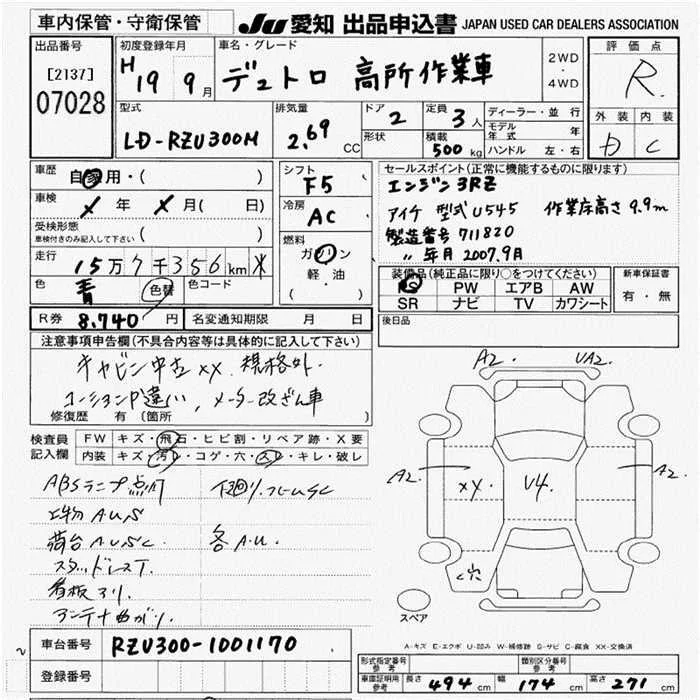 車内保管・守衛保管
JU 愛知 出品申込書 JAPAN USED CAR DEALERS ASSOCIATION
出品番号
[2137]
07028
初度登録年月
H 19 9月
車名・グレード
デュトロ 高所作業車
2WD
・
4WD
評価点
R
外装 内装
D C
型式
LD-RZU300M
排気量
2.69 CC
ドア 2
形状
定員 3人
積載 500 kg
ディーラー・並行
モデル年式 年
ハンドル 左・右
車歴
自家用・( )
車検 X年 X月( 日)
受検形態
車検付きのみ記入して下さい ( )
走行
15万7千356km
色 青
色替
色コード
シフト
F5
冷房
AC
燃料
ガソリン
軽油
(・ )
セールスポイント(正常に機能するものに限ります)
エンジン3RZ
アイチ 型式U545 作業床高さ9.9m
製造番号711820
〃 年月2007.9月
装備品(純正品に限り○をつけてください)
PS PW エアB AW
SR ナビ TV カワシート
新車保証書
有・無
R券 8.740円
名変通知期限 月 日
後日品
注意事項申告欄(不具合内容等は具体的に記入して下さい)
キャビン中古XX 規格外.
コーションP違い、メーター改ざん車
修復歴 有(箇所 )
検査員
記入欄
FW キズ・飛石・ヒビ割・リペア跡・X要
内装 キズ・汚レ・コゲ・穴・スレ・キレ・破レ
ABSランプ点灯 下廻り.フレームSC
上物AUS
荷台AUSC. 各A.U.
スタッドレスT.
看板アリ.
アンテナ曲がり.
A2. UA2.
A2. XX U4. A2.
穴
スペア
A-キズ E-エクボ U-凹み W-補修跡 S-サビ C-腐食 XX-交換済
車台番号 RZU300-1001170
登録番号
形式指定番号参考
類別区分番号参考
車庫証明用参考 長さ 494cm 幅 174cm 高さ 271cm